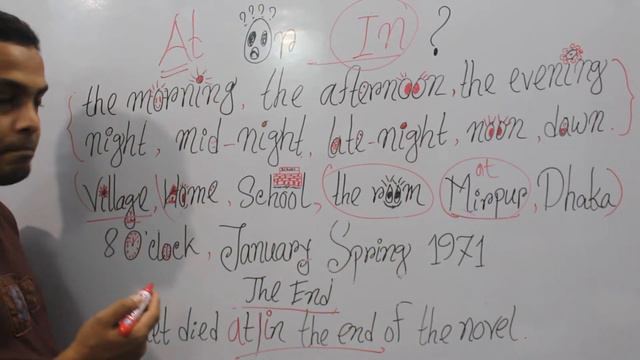 At or In ?
(the morning, the afternoon, the evening
night, mid-night, late-night, noon, dawn.)
(Village, Home, School, the room, at Mirpur, Dhaka)
8 O'clock, January Spring 1971
The End
died at/in the end of the novel.